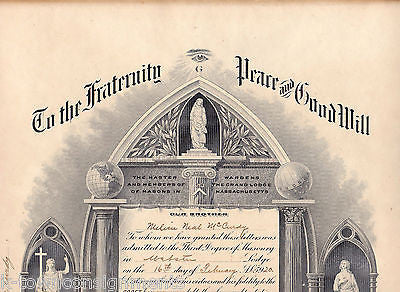 To the Fraternity Peace and Good Will
G
THE MASTER WARDENS
AND MEMBERS OF THE GRAND LODGE
OF MASONS IN MASSACHUSETTS
OUR BROTHER
Melvin Neal
To whom we have granted this letter was
admitted to the Third Degree of Masonry
in Webster Lodge
on the 16th day of February